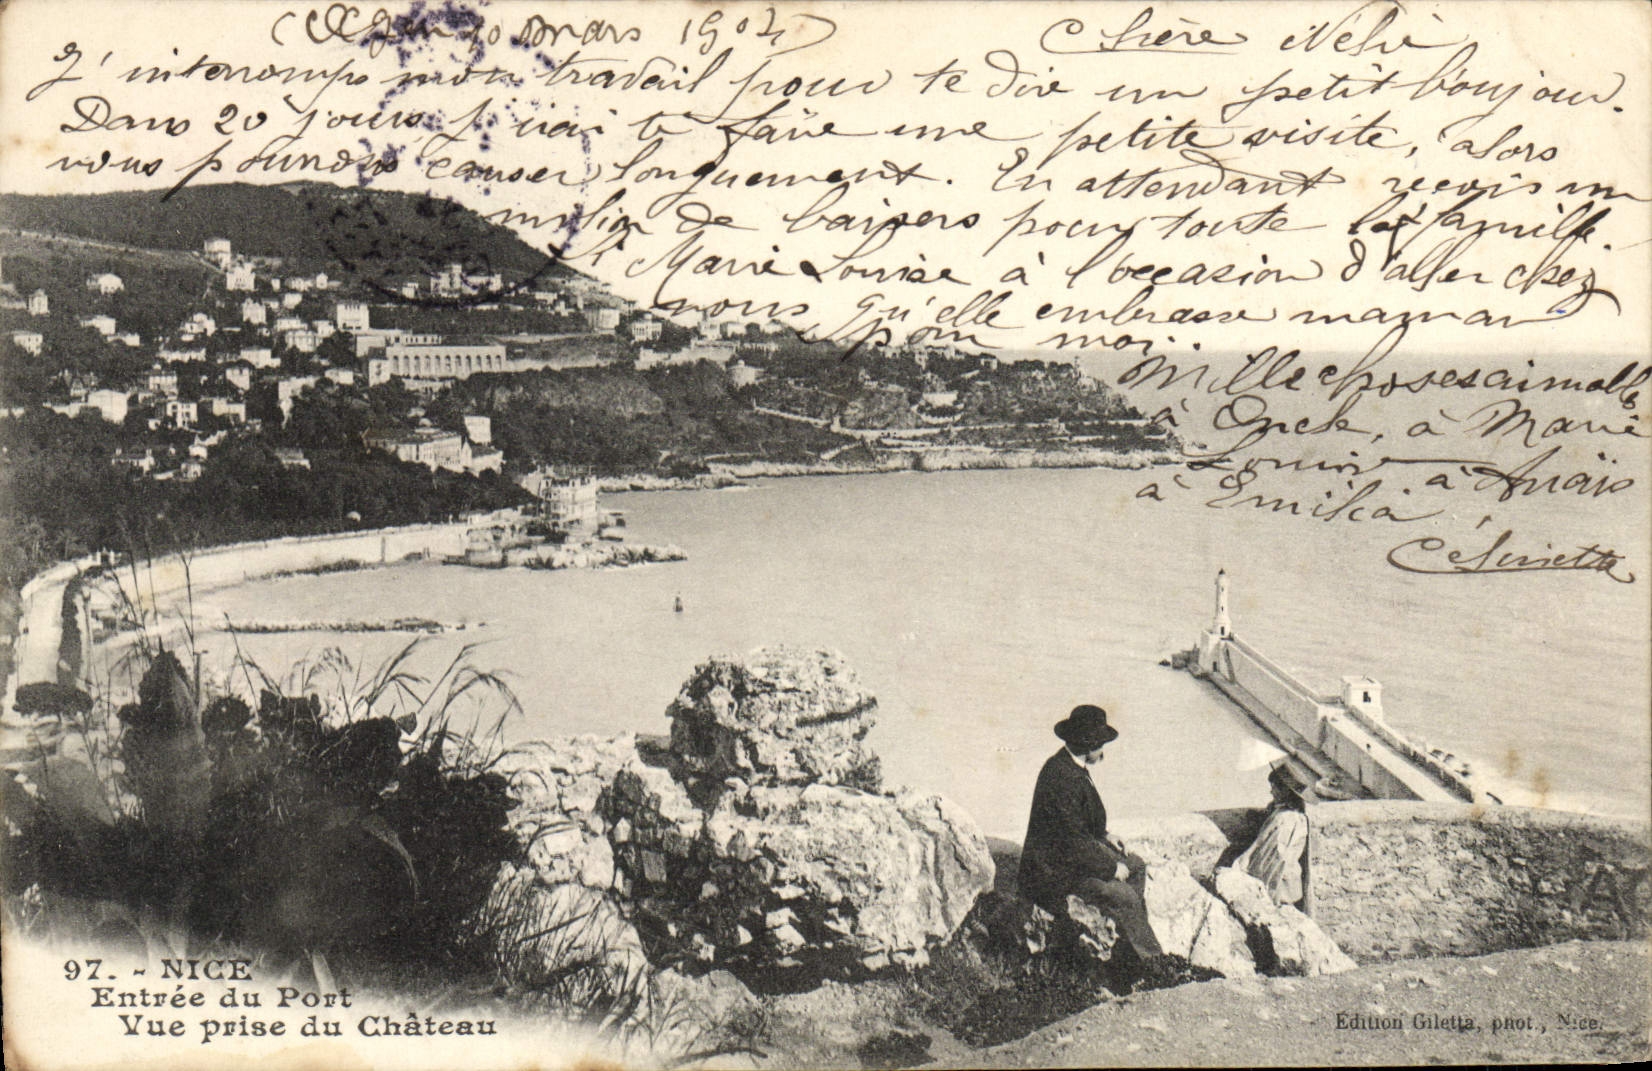 (Agen 10 Mars 1904) Chère Nésie
J'interromps mon travail pour te dire un petit bonjour.
Dans 20 jours j'irai te faire une petite visite, alors
nous pourrons causer longuement. En attendant reçois un
million de baisers pour toute la famille.
Si Marie Louise à l'occasion d'aller chez
nous qu'elle embrasse maman
pour moi.
Mille choses aimables
à Oncle, à Marie
Louise à Anaïs
à Emilia.
97. - NICE
Entrée du Port
Vue prise du Château
Edition Giletta, phot., Nice.